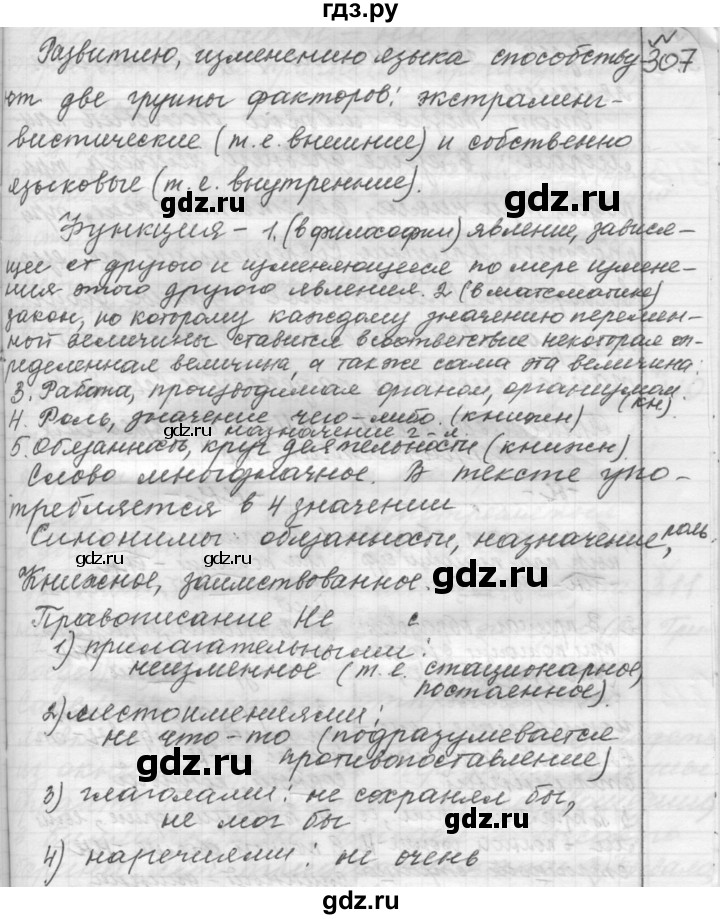 гдз.ру
307
Развитию, изменению языка способству-
ют две группы факторов: экстралинг-
вистические (т.е. внешние) и собственно
языковые (т.е. внутренние).
gdz.ru
gdz.ru
gdz.ru
Функция – 1. (в философии) явление, завися-
щее от другого и изменяющееся по мере измене-
ния этого другого явления. 2 (в математике)
закон, по которому каждому значению перемен-
ной величины ставится в соответствие некоторая оп-
ределенная величина, а также сама эта величина.
gdz.ru
gdz.ru
3. Работа, производимая органом, организмом.
(кн)
4. Роль, значение чего-либо. (книжн)
назначение ч-л.
5. Обязанность, круг деятельности (книжн).
gdz.ru
gdz.ru
gdz.ru
Слово многозначное. В тексте упо-
требляется в 4 значении
Синонимы: обязанности, назначение, роль.
gdz.ru
gdz.ru
gdz.ru
Книжное, заимствованное.
Правописание Не с
1) прилагательными:
неизменное (т.е. стационарное,
постоенное).
gdz.ru
gdz.ru
2) местоимениями:
не что-то (подразумевается
противопоставление)
gdz.ru
gdz.ru
3) глаголами: не сохранял бы,
не мог бы
gdz.ru
4) наречиями: не очень
gdz.ru
gdz.ru